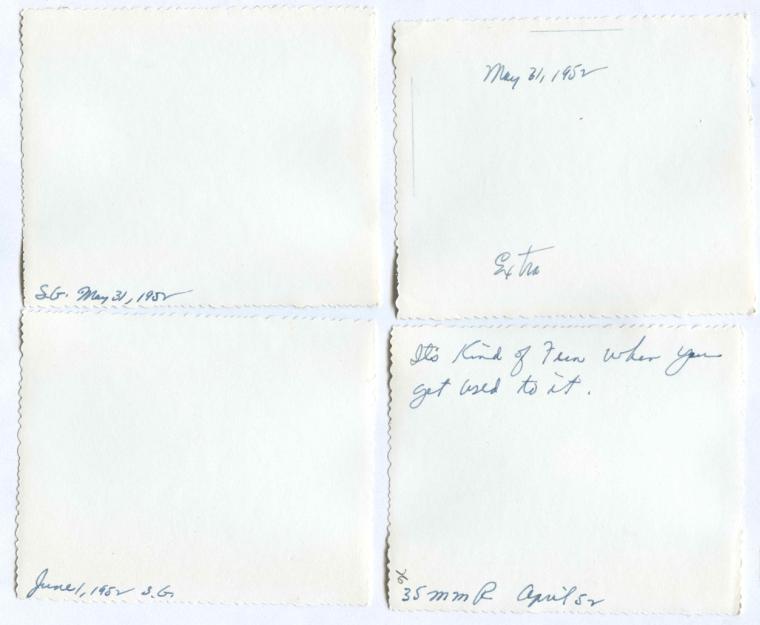 S.G. May 31, 1952
May 31, 1952
Extra
June 1, 1952 S.G.
It's Kind of Fun when you
get used to it.
35mm R April 52